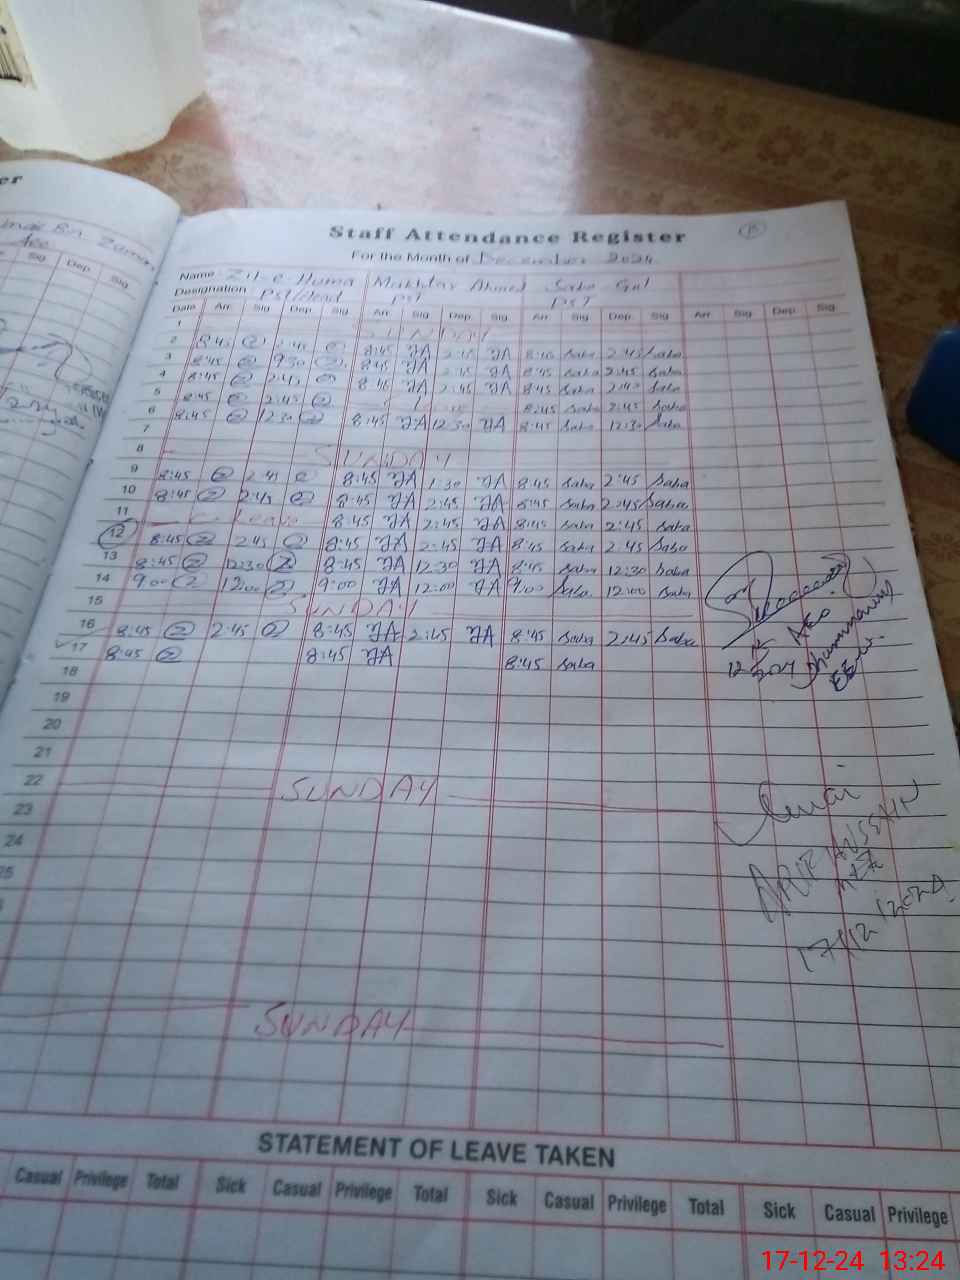 er
Sig Dep. Sig
Staff Attendance Register
For the Month of December 2024
Name Zil-e-Huma Mukhtar Ahmed Saba Gul
Designation PST/Head PST PST
Date Arr. Sig Dep. Sig Arr. Sig Dep. Sig Arr. Sig Dep. Sig Arr. Sig Dep. Sig
1 SUNDAY
2 8:45 2:45 8:45 JA 2:45 JA 8:45 Saba 2:45 Saba
3 8:45 9:30 8:45 JA 2:45 JA 8:45 Saba 2:45 Saba
4 8:45 2:45 8:45 JA 2:45 JA 8:45 Saba 2:45 Saba
5 8:45 2:45 8:45 Saba 2:45 Saba
6 8:45 12:30 8:45 JA 12:30 JA 8:45 Saba 12:30 Saba
7
8 SUNDAY
9 8:45 2:45 8:45 JA 1:30 JA 8:45 Saba 2:45 Saba
10 8:45 2:45 8:45 JA 2:45 JA 8:45 Saba 2:45 Saba
11 Leave 8:45 JA 2:45 JA 8:45 Saba 2:45 Saba
12 8:45 2:45 8:45 JA 2:45 JA 8:45 Saba 2:45 Saba
13 8:45 12:30 8:45 JA 12:30 JA 8:45 Saba 12:30 Saba
14 9:00 12:00 9:00 JA 12:00 JA 9:00 Saba 12:00 Saba
15 SUNDAY
16 8:45 2:45 8:45 JA 2:45 JA 8:45 Saba 2:45 Saba
17 8:45 8:45 JA 8:45 Saba
18
AEO
12 12 2024
19
20
21
22 SUNDAY
23
24
25
HUSSAIN
MEA
17/12/2024
SUNDAY
STATEMENT OF LEAVE TAKEN
Casual Privilege Total Sick Casual Privilege Total Sick Casual Privilege Total Sick Casual Privilege
17-12-24 13:24